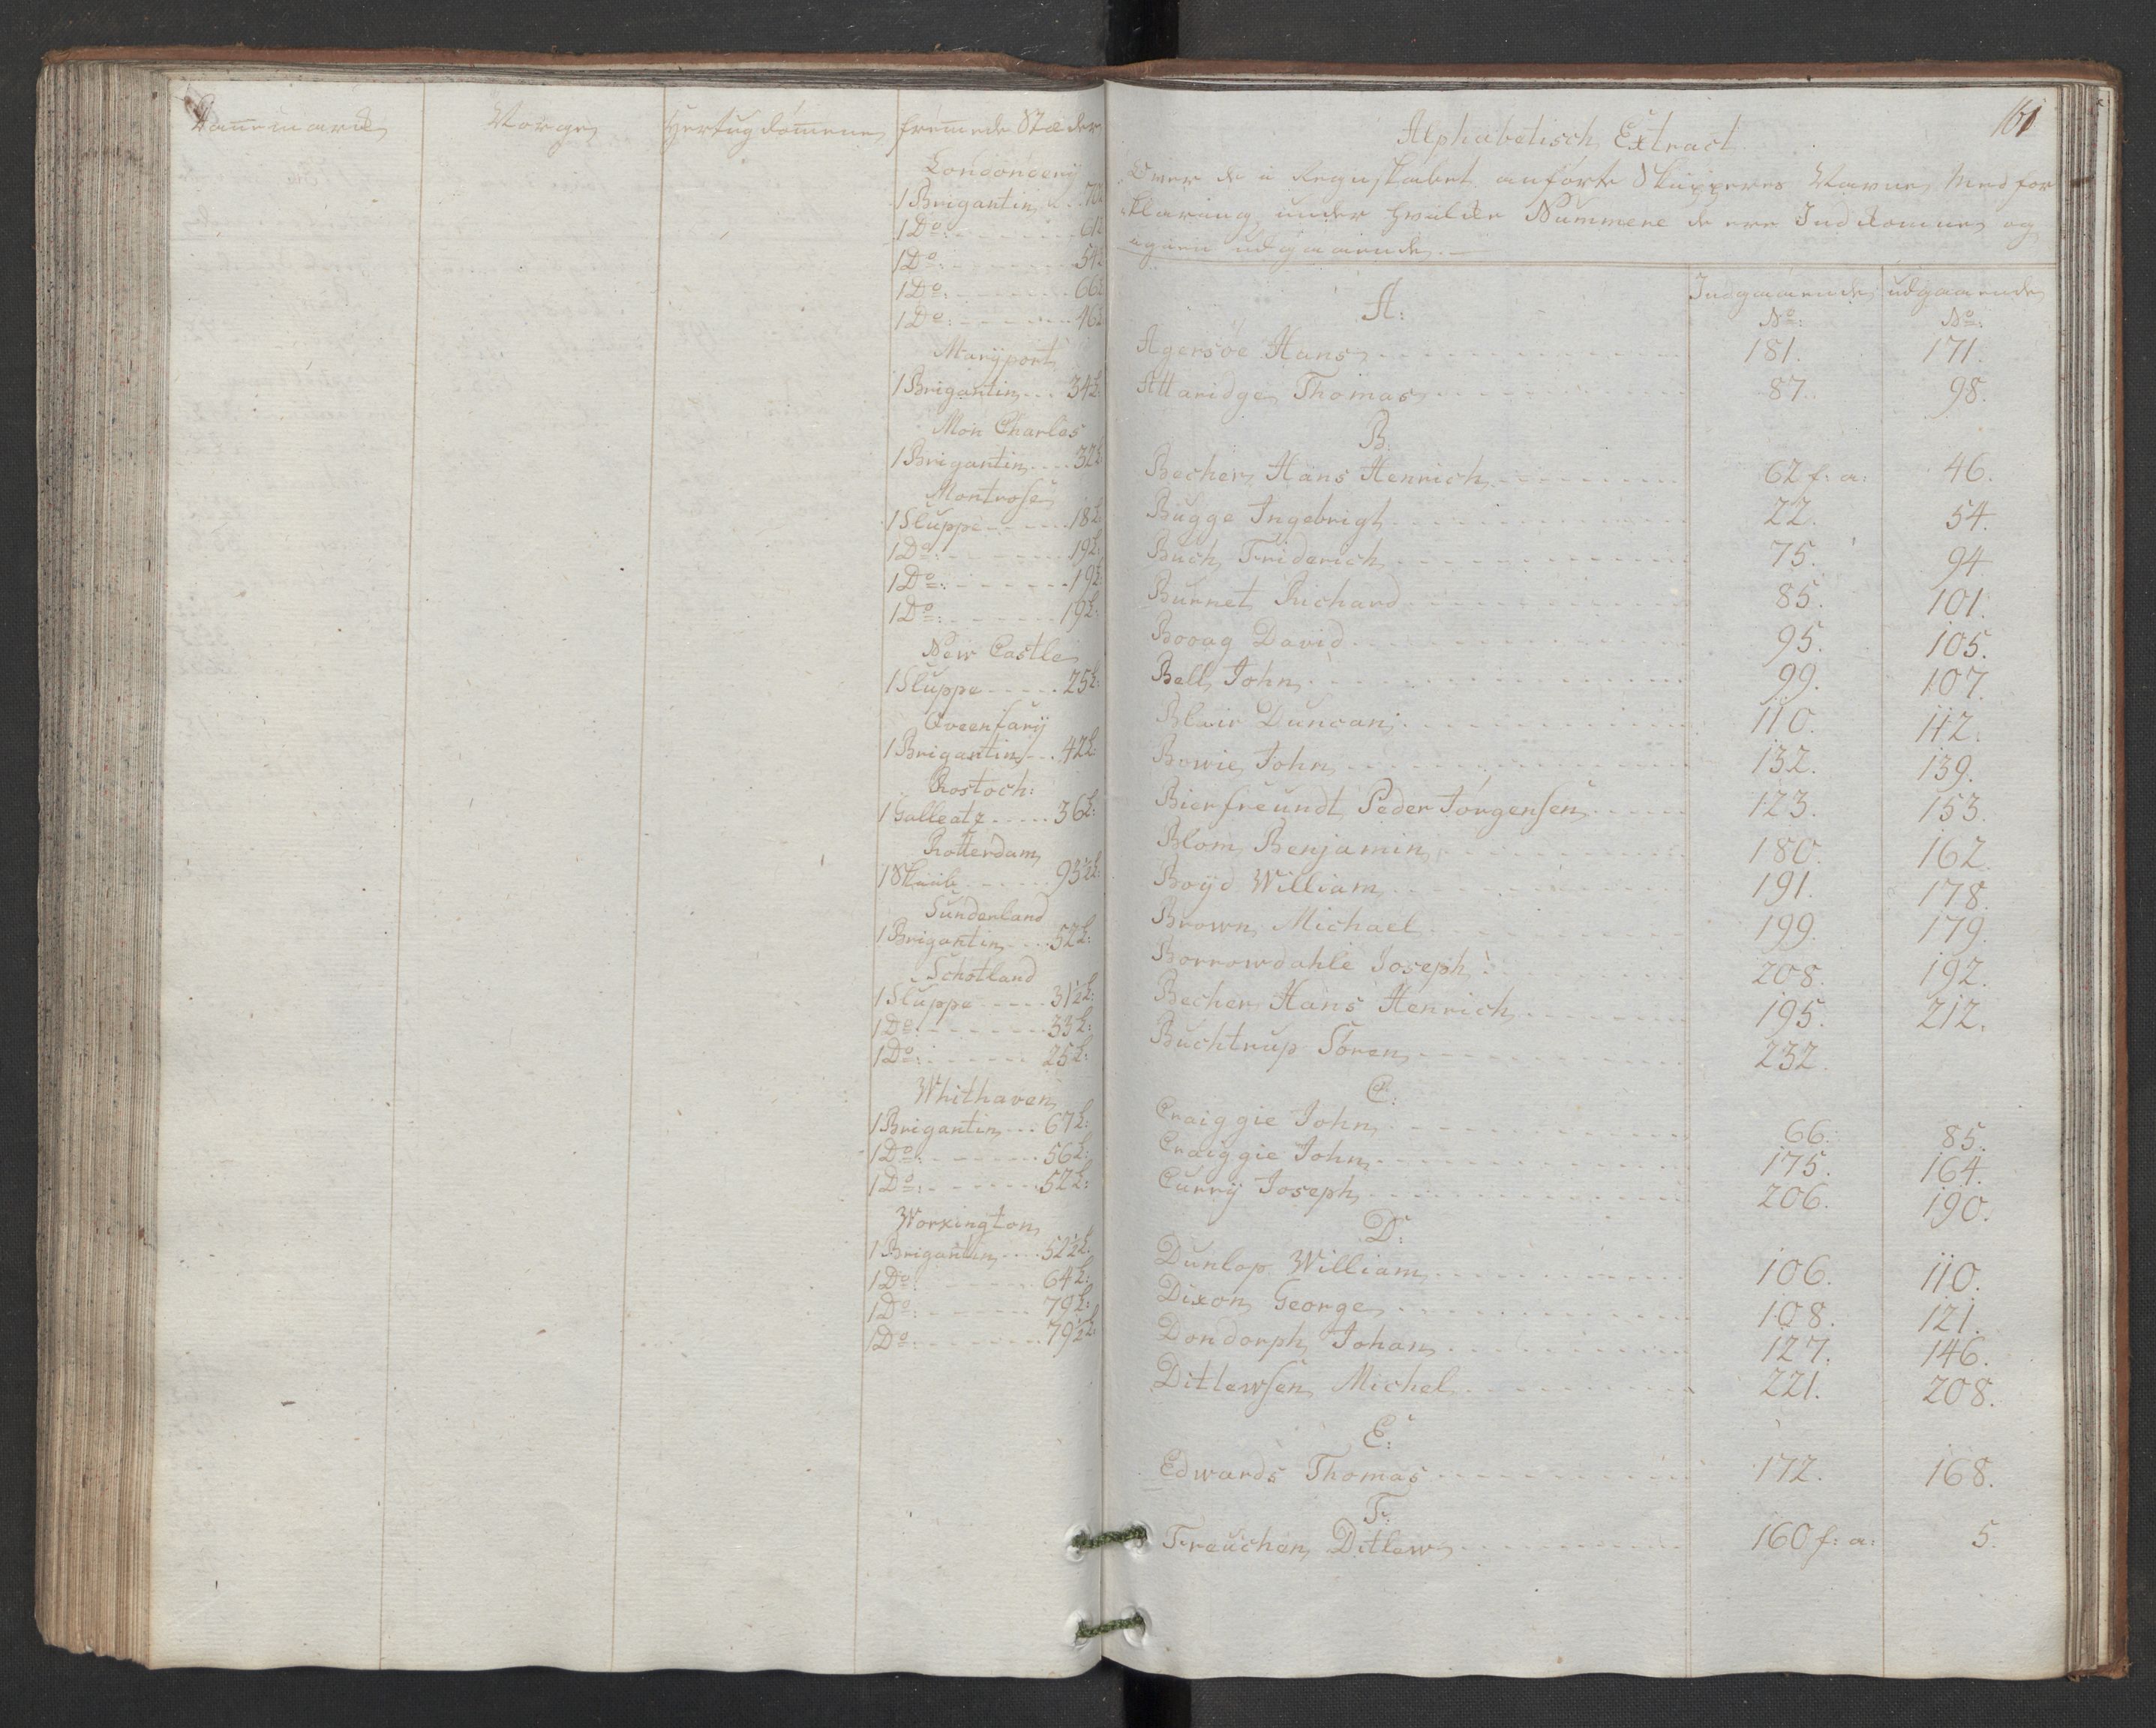 Dannemarck Norge Hertugdömene fremede Stæder
Londonderij
1 Brigantin
1 Do:
1 Do:
1 Do:
1 Do:
Marijport
1 Brigantin ... 34 L:
Mon Charles
1 Brigantin .... 32 L:
Montrose
1 Sluppe ..... 18 L:
1 Do: ..... 19 L:
1 Do: ..... 19 L:
1 Do: ..... 19 L:
New Castle
1 Sluppe ..... 25 L:
1 Brigantin ... 42 L:
Rostoch:
1 Galleatz ..... 36 L:
Rotterdam
1 Skiib ..... 93½ L:
Sunderland
1 Brigantin .... 52 L:
Schotland
1 Sluppe ..... 31½ L:
1 Do: ..... 33 L:
1 Do: ..... 25 L:
Whithaven
1 Brigantin ... 67 L:
1 Do: ..... 56 L:
1 Do: ..... 52 L:
Worxington
1 Brigantin .... 52½ L:
1 Do: ..... 64 L:
1 Do: ..... 79 L:
1 Do: ..... 79½ L:
161
Alphabetisch Extract
Over de i Regnskabet anförte Skipperes Navne, Med for
klaring under hvilke Nummere de ere Indkomne og
igien udgaaende.
Indgaaende udgaaende
A: No: No:
Agersöe Hans 181. 171.
Attaridge Thomas 87. 98.
B:
Becher Hans Henrich 62 f: a: 46.
Bugge Ingebrigt 22. 54.
Buch Friderich 75. 94
Burnet Richard 85. 101.
Booag David 95. 105.
Bell John 99. 107.
Blair Duncan 110. 112.
Bowie John 132. 139.
Bierfreundt Peder Jörgensen 123. 153.
Blom Benjamin 180. 162.
Boijd William 191. 178.
Brown Michael 199. 179.
Borrowdahle Joseph 208. 192.
Becher Hans Henrich 195. 212.
Buchtrup Sören 232.
C:
Craiggie John 66. 85.
Craiggie John 175. 164.
Currij Joseph 206. 190.
D:
Dunlop William 106. 110.
Dixon George 108. 121.
Dondorph Johan 127. 146.
Ditlewsen Michel 221. 208.
E:
Edwards Thomas 172. 168.
F:
Freuchen Ditlew 160 f: a: 5.